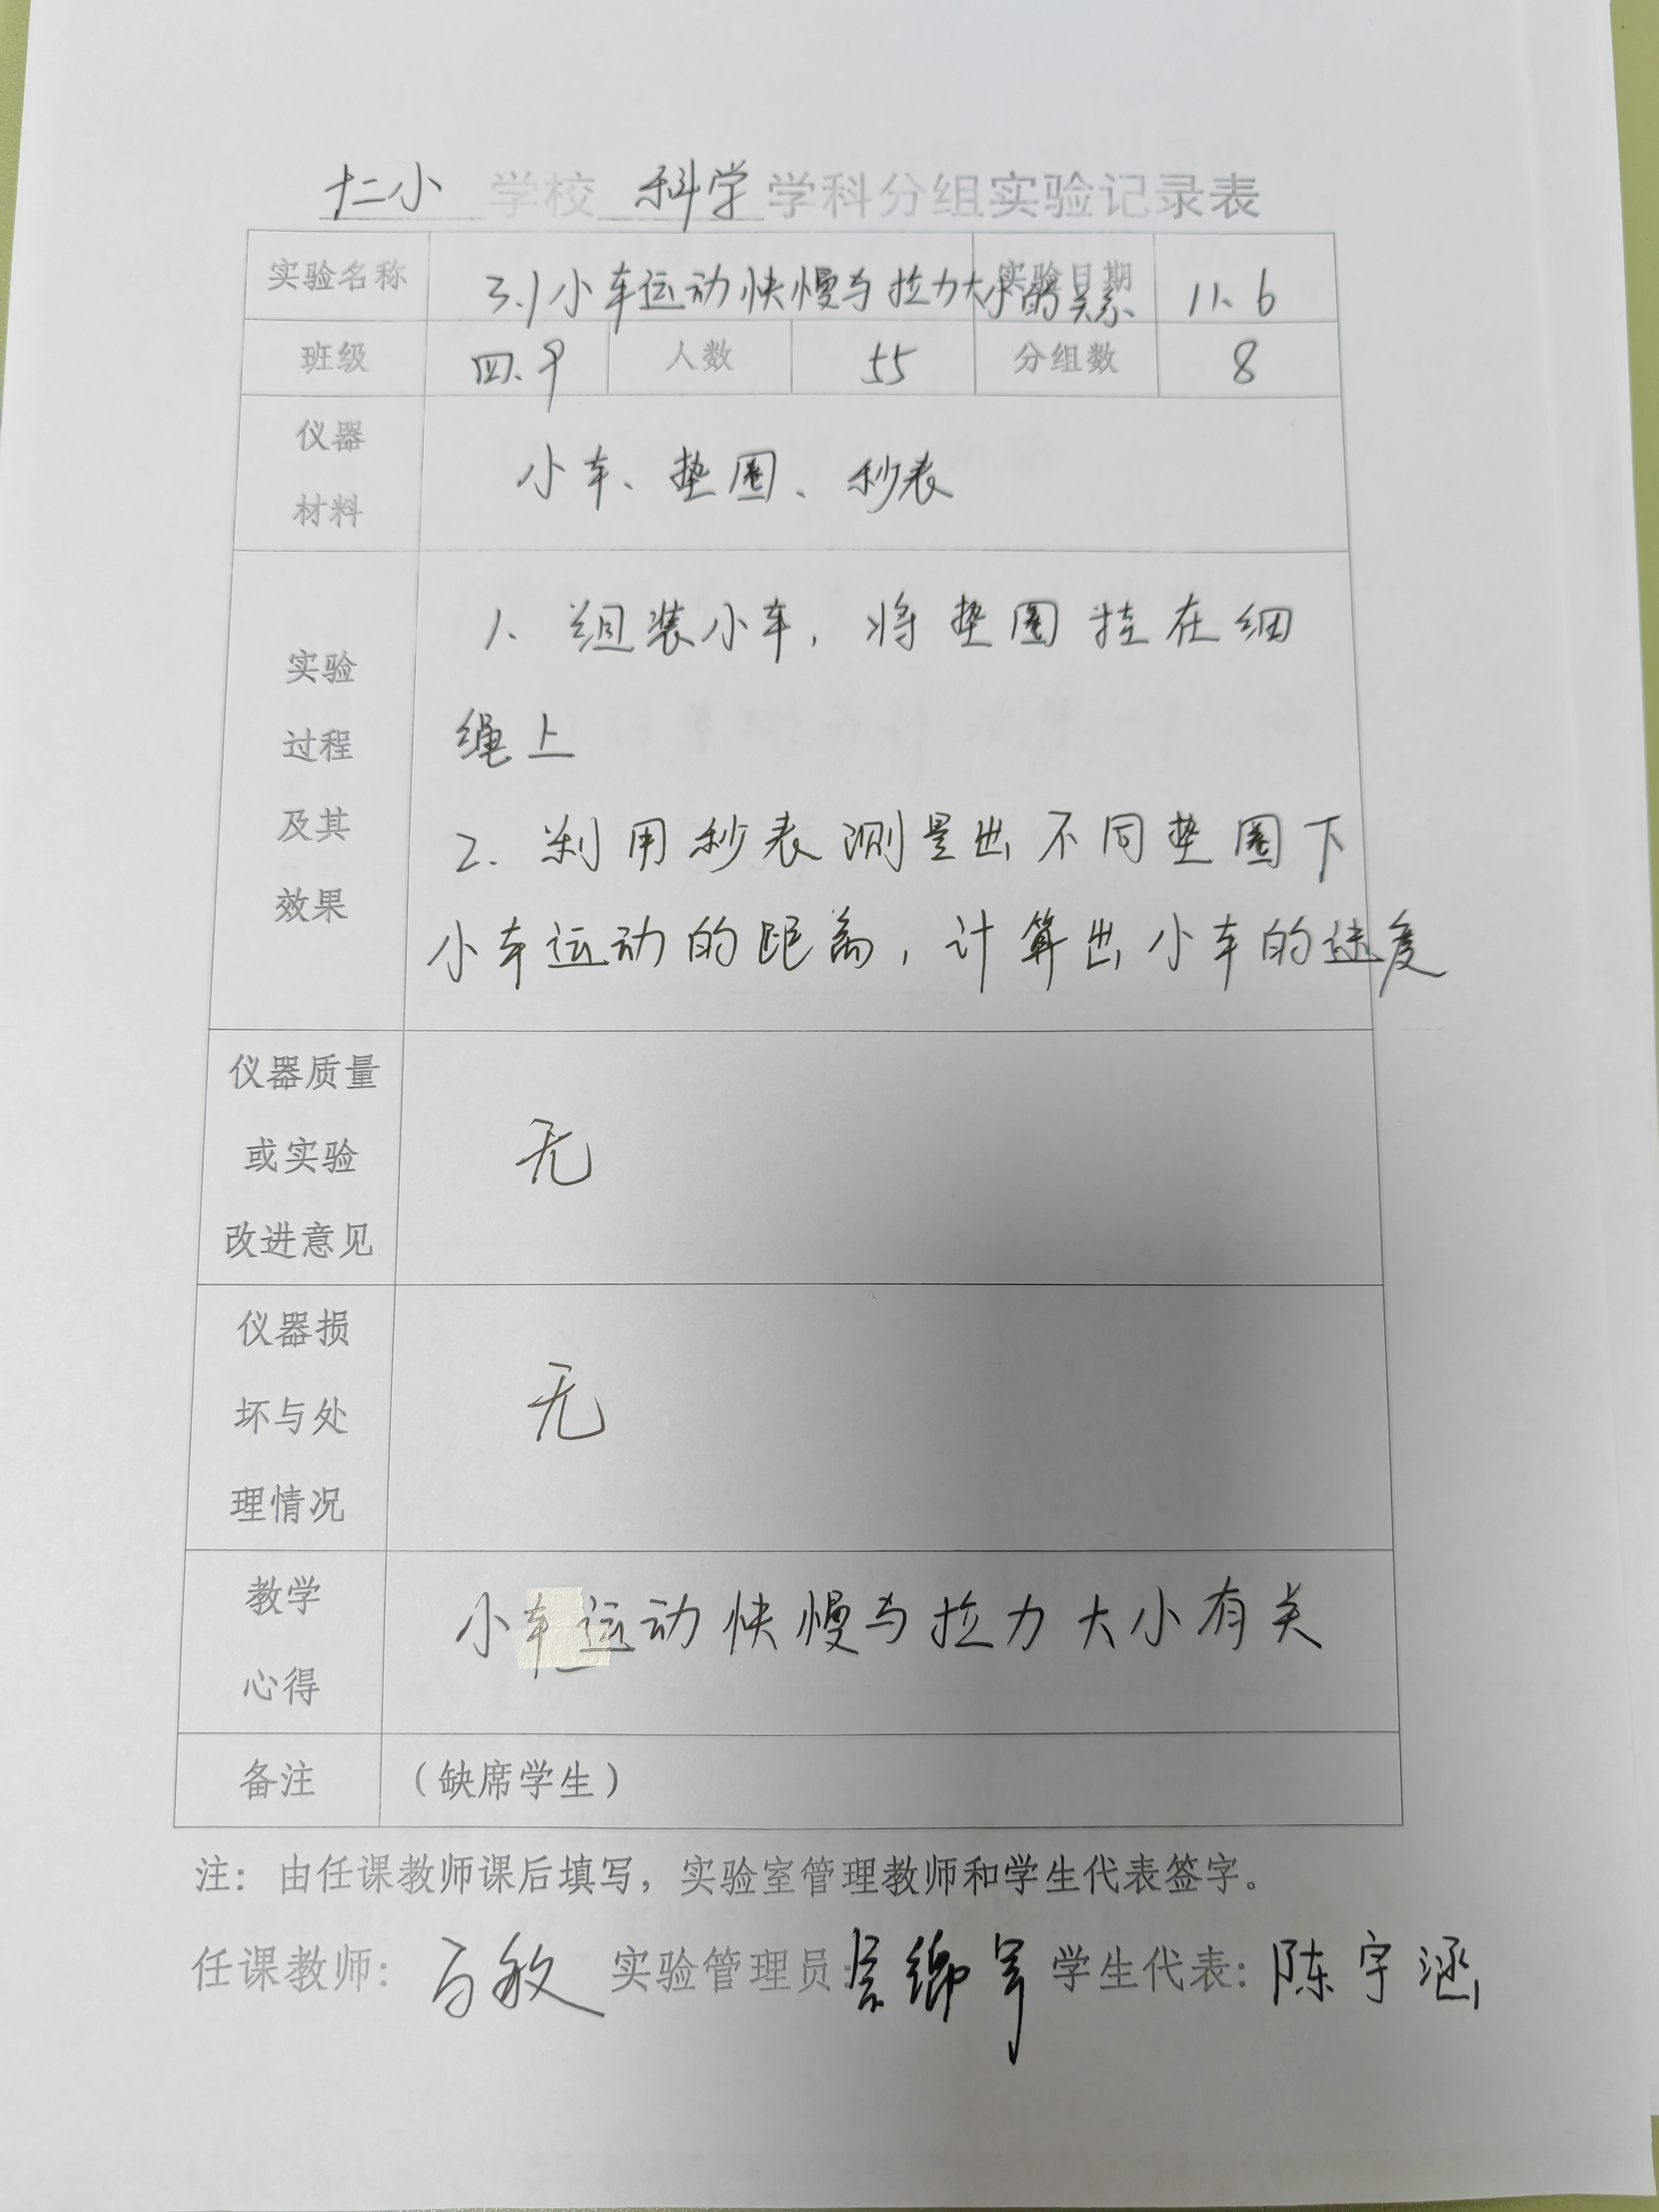 十二小 学校 科学 学科分组实验记录表
实验名称 3.1小车运动快慢与拉力大小的关系 实验日期 11.6
班级 四.9 人数 55 分组数 8
仪器
材料
小车、垫圈、秒表
实验
过程
及其
效果
1、组装小车,将垫圈挂在细
绳上
2.利用秒表测量出不同垫圈下
小车运动的距离,计算出小车的速度
仪器质量
或实验
改进意见
无
仪器损
坏与处
理情况
无
教学
心得
小车运动快慢与拉力大小有关
备注 (缺席学生)
注:由任课教师课后填写,实验室管理教师和学生代表签字。
任课教师: 实验管理员: 学生代表:陈宇涵